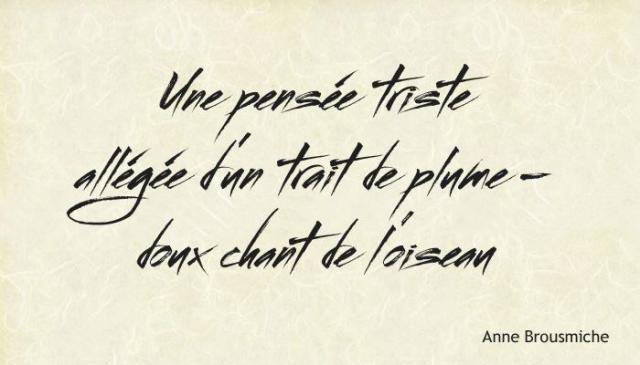 Une pensée triste
allégée d'un trait de plume -
doux chant de l'oiseau
Anne Brousmiche